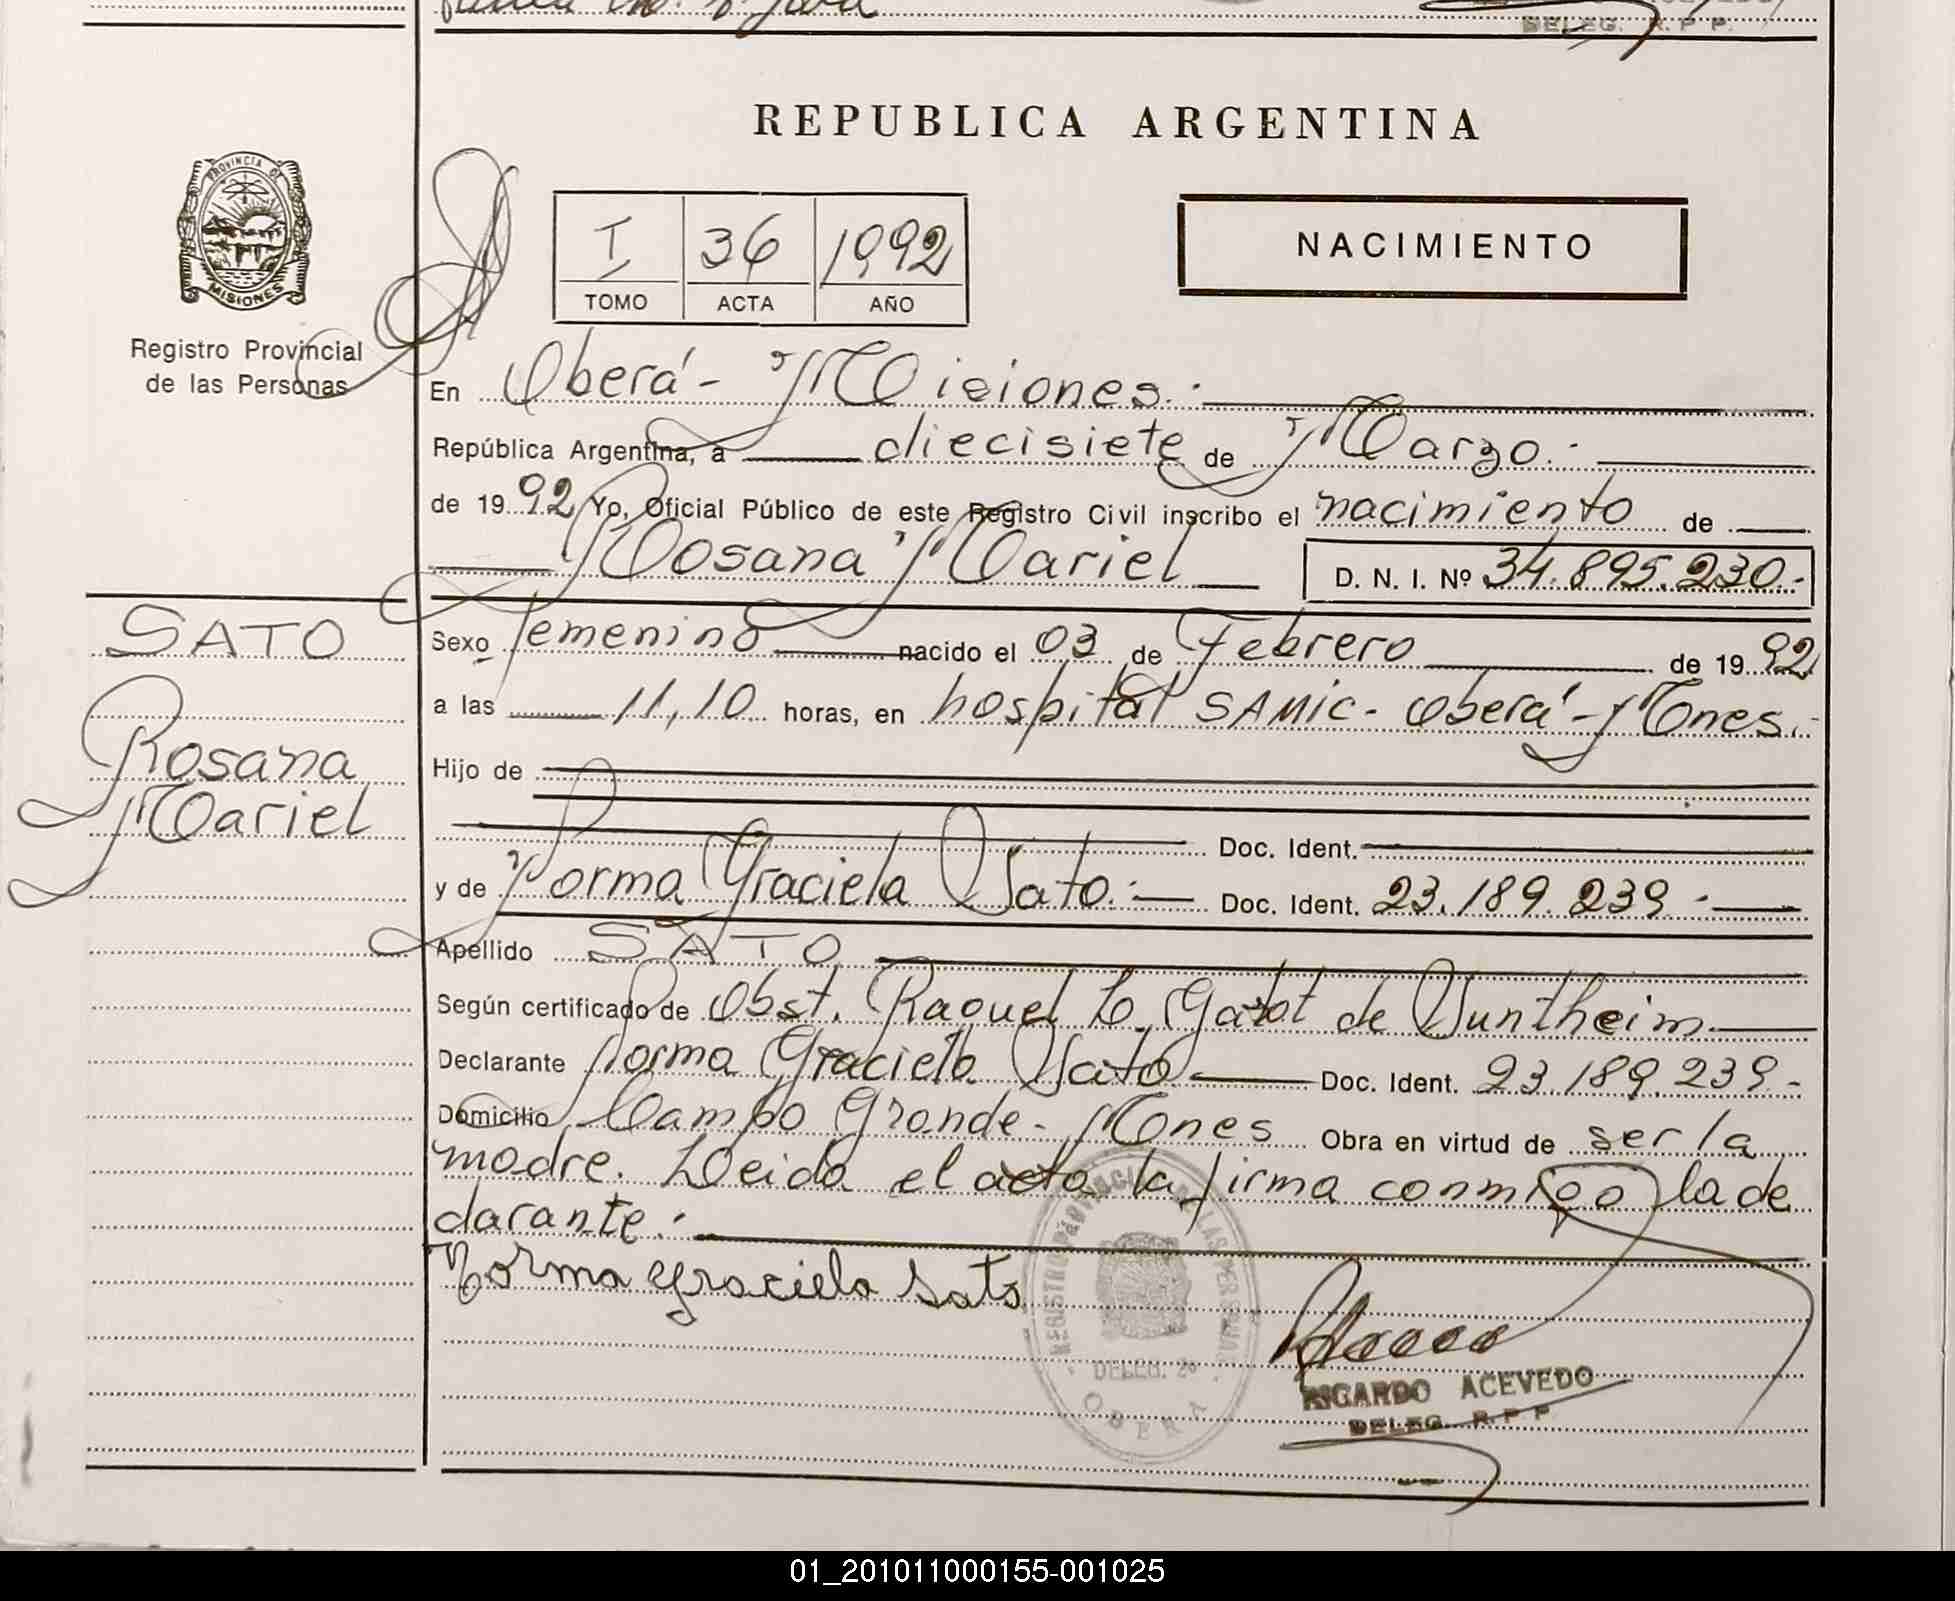 DELEG. R. P P.
REPUBLICA ARGENTINA
PROVINCIA DE
MISIONES
Registro Provincial
de las Personas
I 36 1992
TOMO ACTA AÑO
NACIMIENTO
En Oberá - Misiones.
República Argentina, a diecisiete de Marzo.
de 1992 Yo, Oficial Público de este Registro Civil inscribo el nacimiento de
Rosana Mariel D. N. I. Nº 34.895.230.-
SATO
Rosana
Mariel
Sexo femenino nacido el 03 de Febrero de 1992
a las 11,10 horas, en hospital SAMIC - Oberá - Mnes.
Hijo de
Doc. Ident.
y de Norma Graciela Sato. Doc. Ident. 23.189.239.
Apellido SATO
Según certificado de Obst. Raquel L. de
Declarante Norma Graciela Sato Doc. Ident. 23.189.239.-
Domicilio Campo Grande - Mnes Obra en virtud de ser la
madre. Leida el acta la firma conmigo la de
clarante.
Norma Graciela Sato
REGISTRO PROVINCIAL DE LAS PERSONAS
DELEG. 20
OBERA
RICARDO ACEVEDO
DELEG. R. P P.
01_201011000155-001025